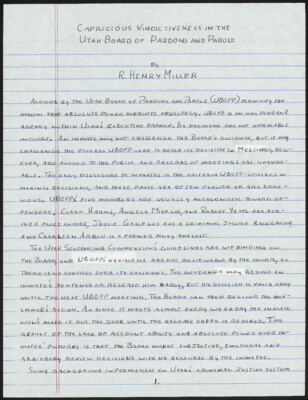 CAPRICIOUS VINDICTIVENESS IN THE
UTAH BOARD OF PARDONS AND PAROLE
BY
R. HENRY MILLER
ACTIONS BY THE UTAH BOARD OF PARDONS AND PAROLE (UBOPP)
MAXIM THAT ABSOLUTE POWER CORRUPTS ABSOLUTELY. UBOPP IS AN INDEPENDENT
AGENCY WITHIN UTAH'S EXECUTIVE BRANCH. ITS DECISIONS ARE NOT APPEALABLE
IN COURT. AN INMATE MAY NOT CHALLENGE THE BOARD'S DECISION, BUT IS MAY
CHALLENGE THE PROCESS UBOPP USED TO REACH ITS DECISION. MEETINGS, HOW-
EVER, ARE CLOSED TO THE PUBLIC AND RECORDS OF MEETINGS ARE UNAVAIL-
ABLE. THE ONLY DISCLOSURE TO INMATES IS THE CRITERIA UBOPP UTILIZES IN
MAKING DECISIONS, AND THESE PAGES ARE OFTEN
UBOPP'S FIVE MEMBERS ARE USUALLY ANTAGONISTIC TOWARD OF-
FENDERS. CLARK HARMS, ANGELA MICKLOS, AND ROBERT YEATS ARE FOR-
MER PROSECUTORS, JESSE GALLEGOS HAS A CRIMINAL JUSTICE BACKGROUND
AND CHARLEEN IS A FORMER ANALYST.
THE UTAH SENTENCING COMMISSION'S GUIDELINES ARE NOT BINDING ON
THE BOARD, AND UBOPP'S DECISIONS ARE NOT REVIEWABLE BY THE COURTS, SO
THERE IS NO CONTROL OVER ITS DECISIONS. THE GOVERNOR MAY REDUCE AN
INMATE'S SENTENCE OR RELEASE HIM EARLY, BUT HIS DECISION IS VALID ONLY
UNTIL THE NEXT UBOPP MEETING. THE BOARD CAN THEN RESCIND THE GOV-
ERNOR'S ACTION. AND SINCE IT MEETS ALMOST EVERY WORKDAY THE INMATE
WON'T MAKE IT OUT THE DOOR UNTIL THE RELEASE ORDER IS REVOKED. THE
RESULT OF THE LACK OF ACCOUNTABILITY AND ABSOLUTE POWER OVER IN-
MATES' FUTURES IS THAT THE BOARD MAKES SUBJECTIVE, EMOTIONAL AND
ARBITRARY REVIEW DECISIONS WITH NO RECOURSE BY THE INMATE.
SOME BACKGROUND INFORMATION ON UTAH'S CRIMINAL JUSTICE SYSTEM
1.